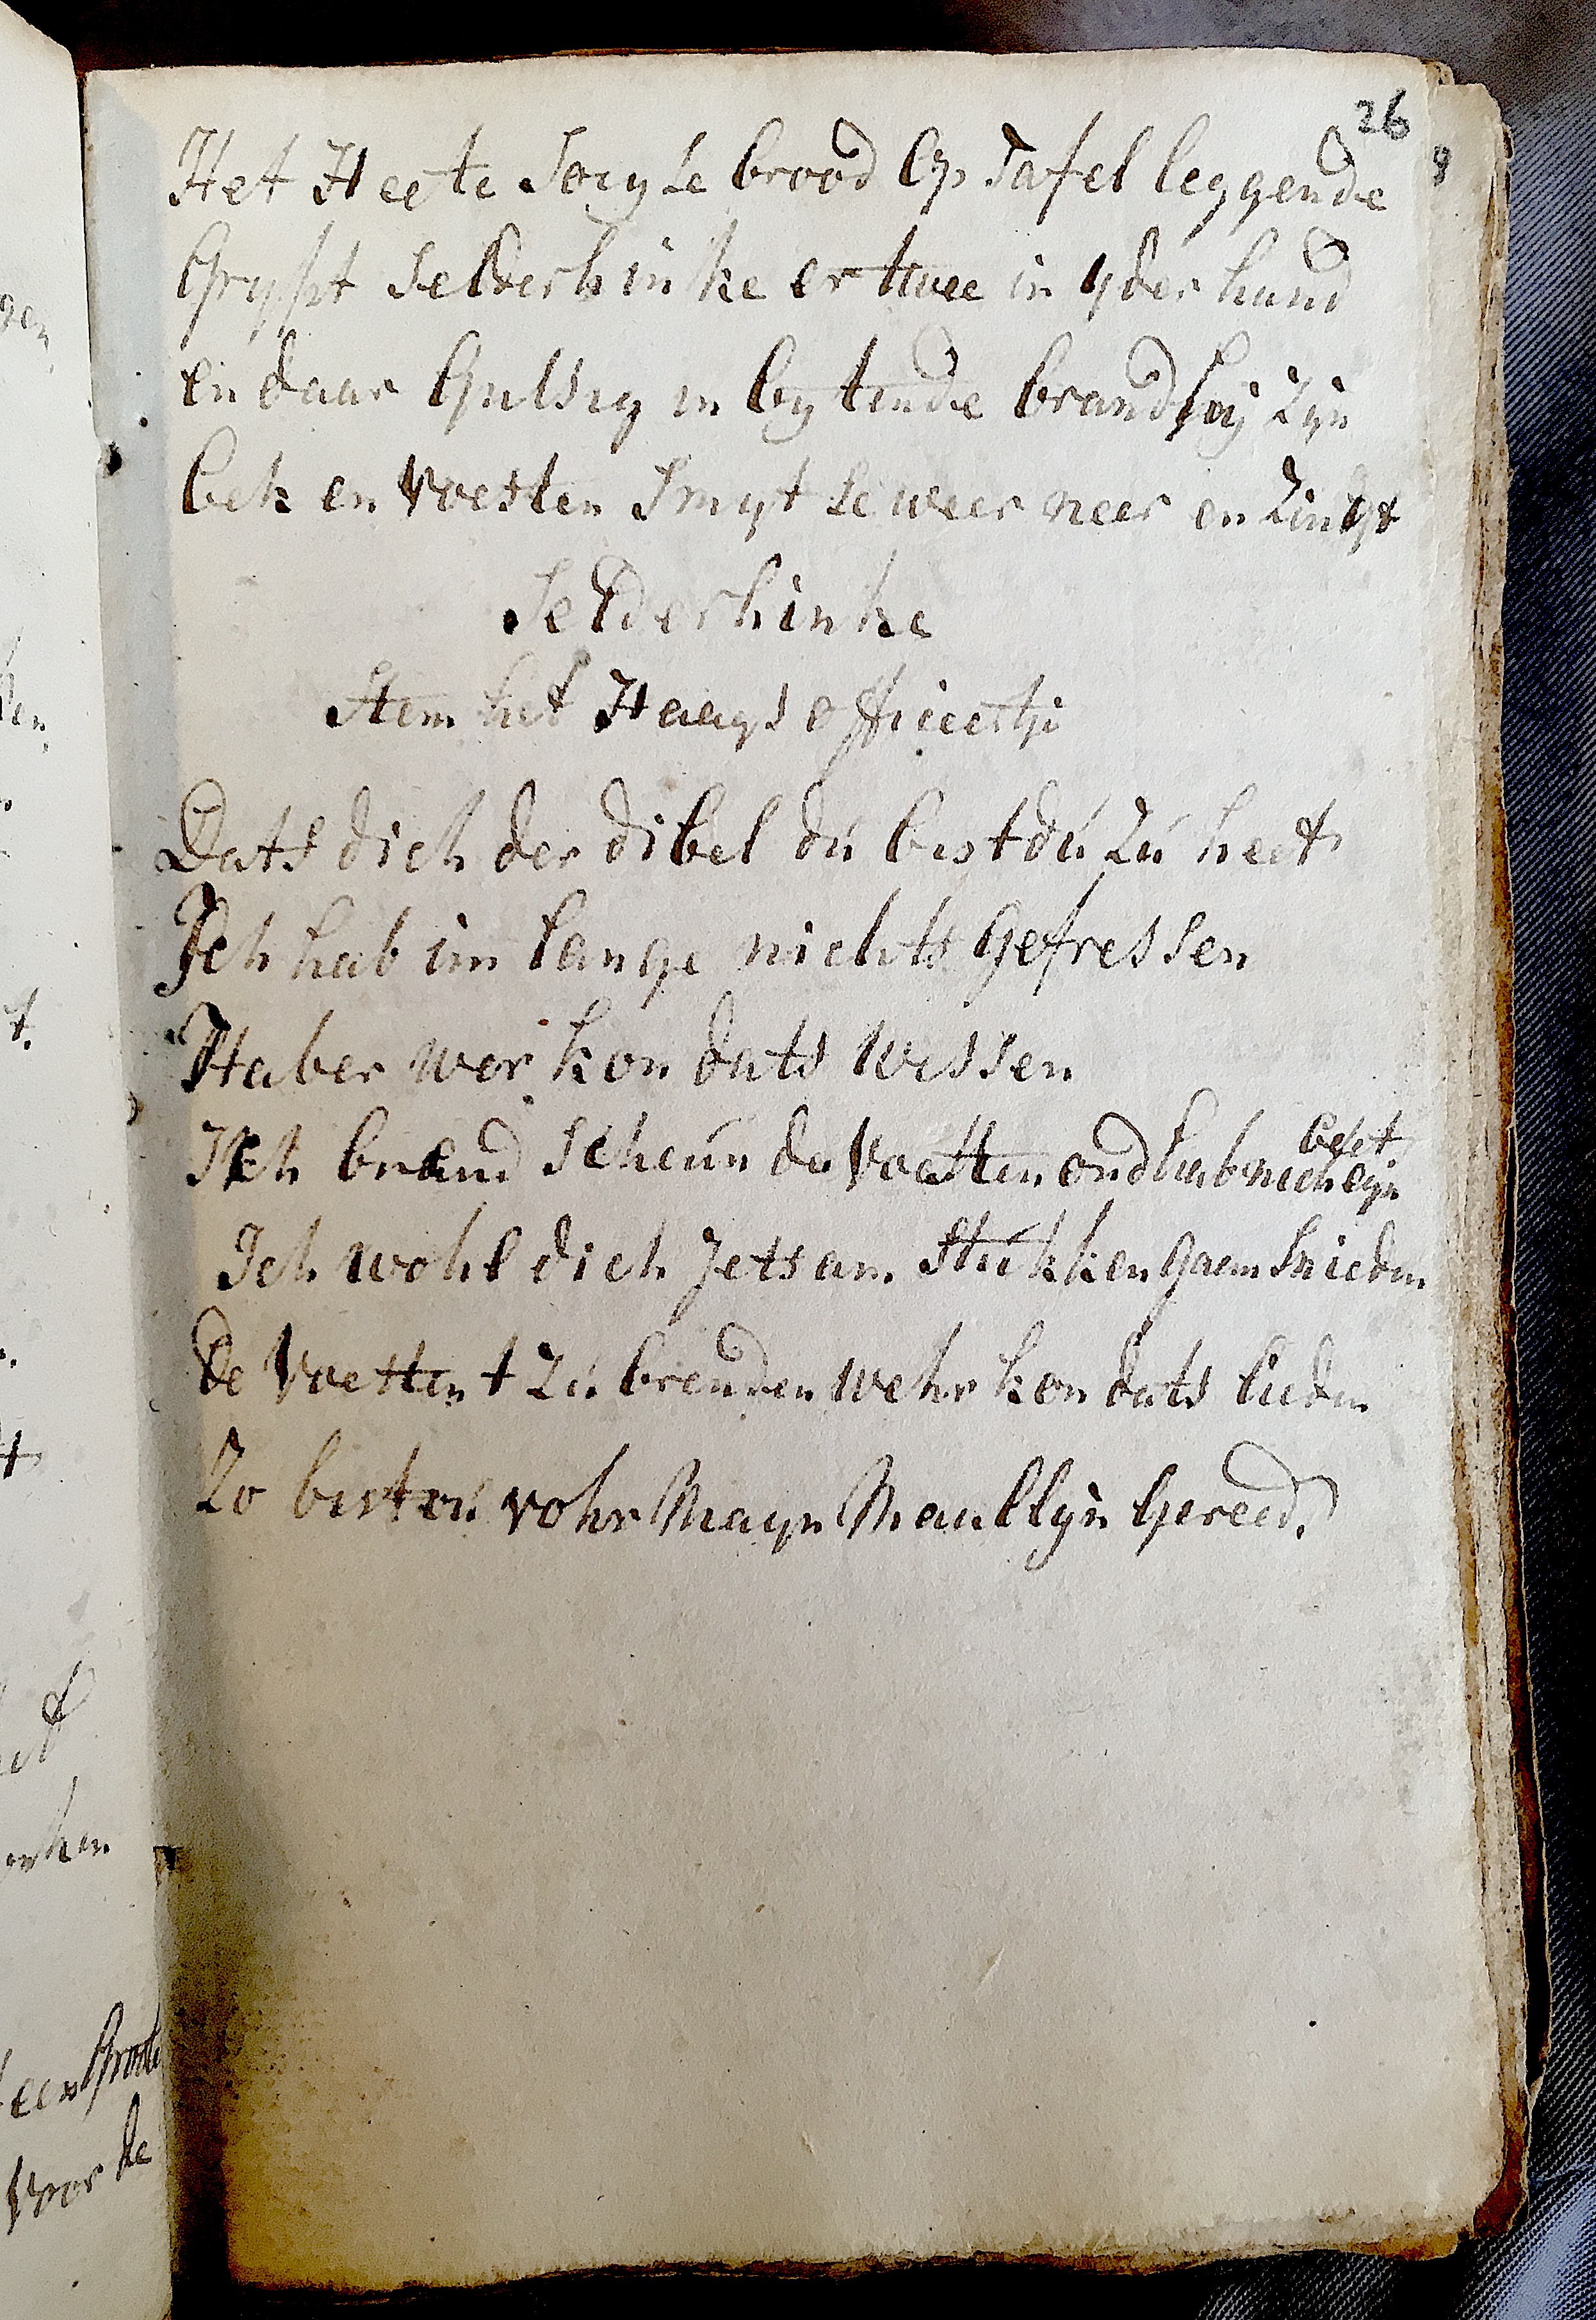 26
Het Heete Soryse brood Op Tafel leggende
Grypt Selderhinke er twee in yder hand
en daar Gulsig in bytende brand hy Zyn
bek en Voesten Smyt se weer neer en Zingt
Selderhinke
Stem het Haags officeertje
Dats dich der dibel dú bist dú Zú heet
Ich hab im lange nichts Gefressen
Haber wer kon dats wissen
Ich brand scheun de Voesten ond hab nich eyn
beet
Ich wohl dich Jets an Stúkken gaen snieden
De Voesten t Zú brenden wehr kon dats lieden
Zo bistú vohr Mayn Maullyn Gereed.